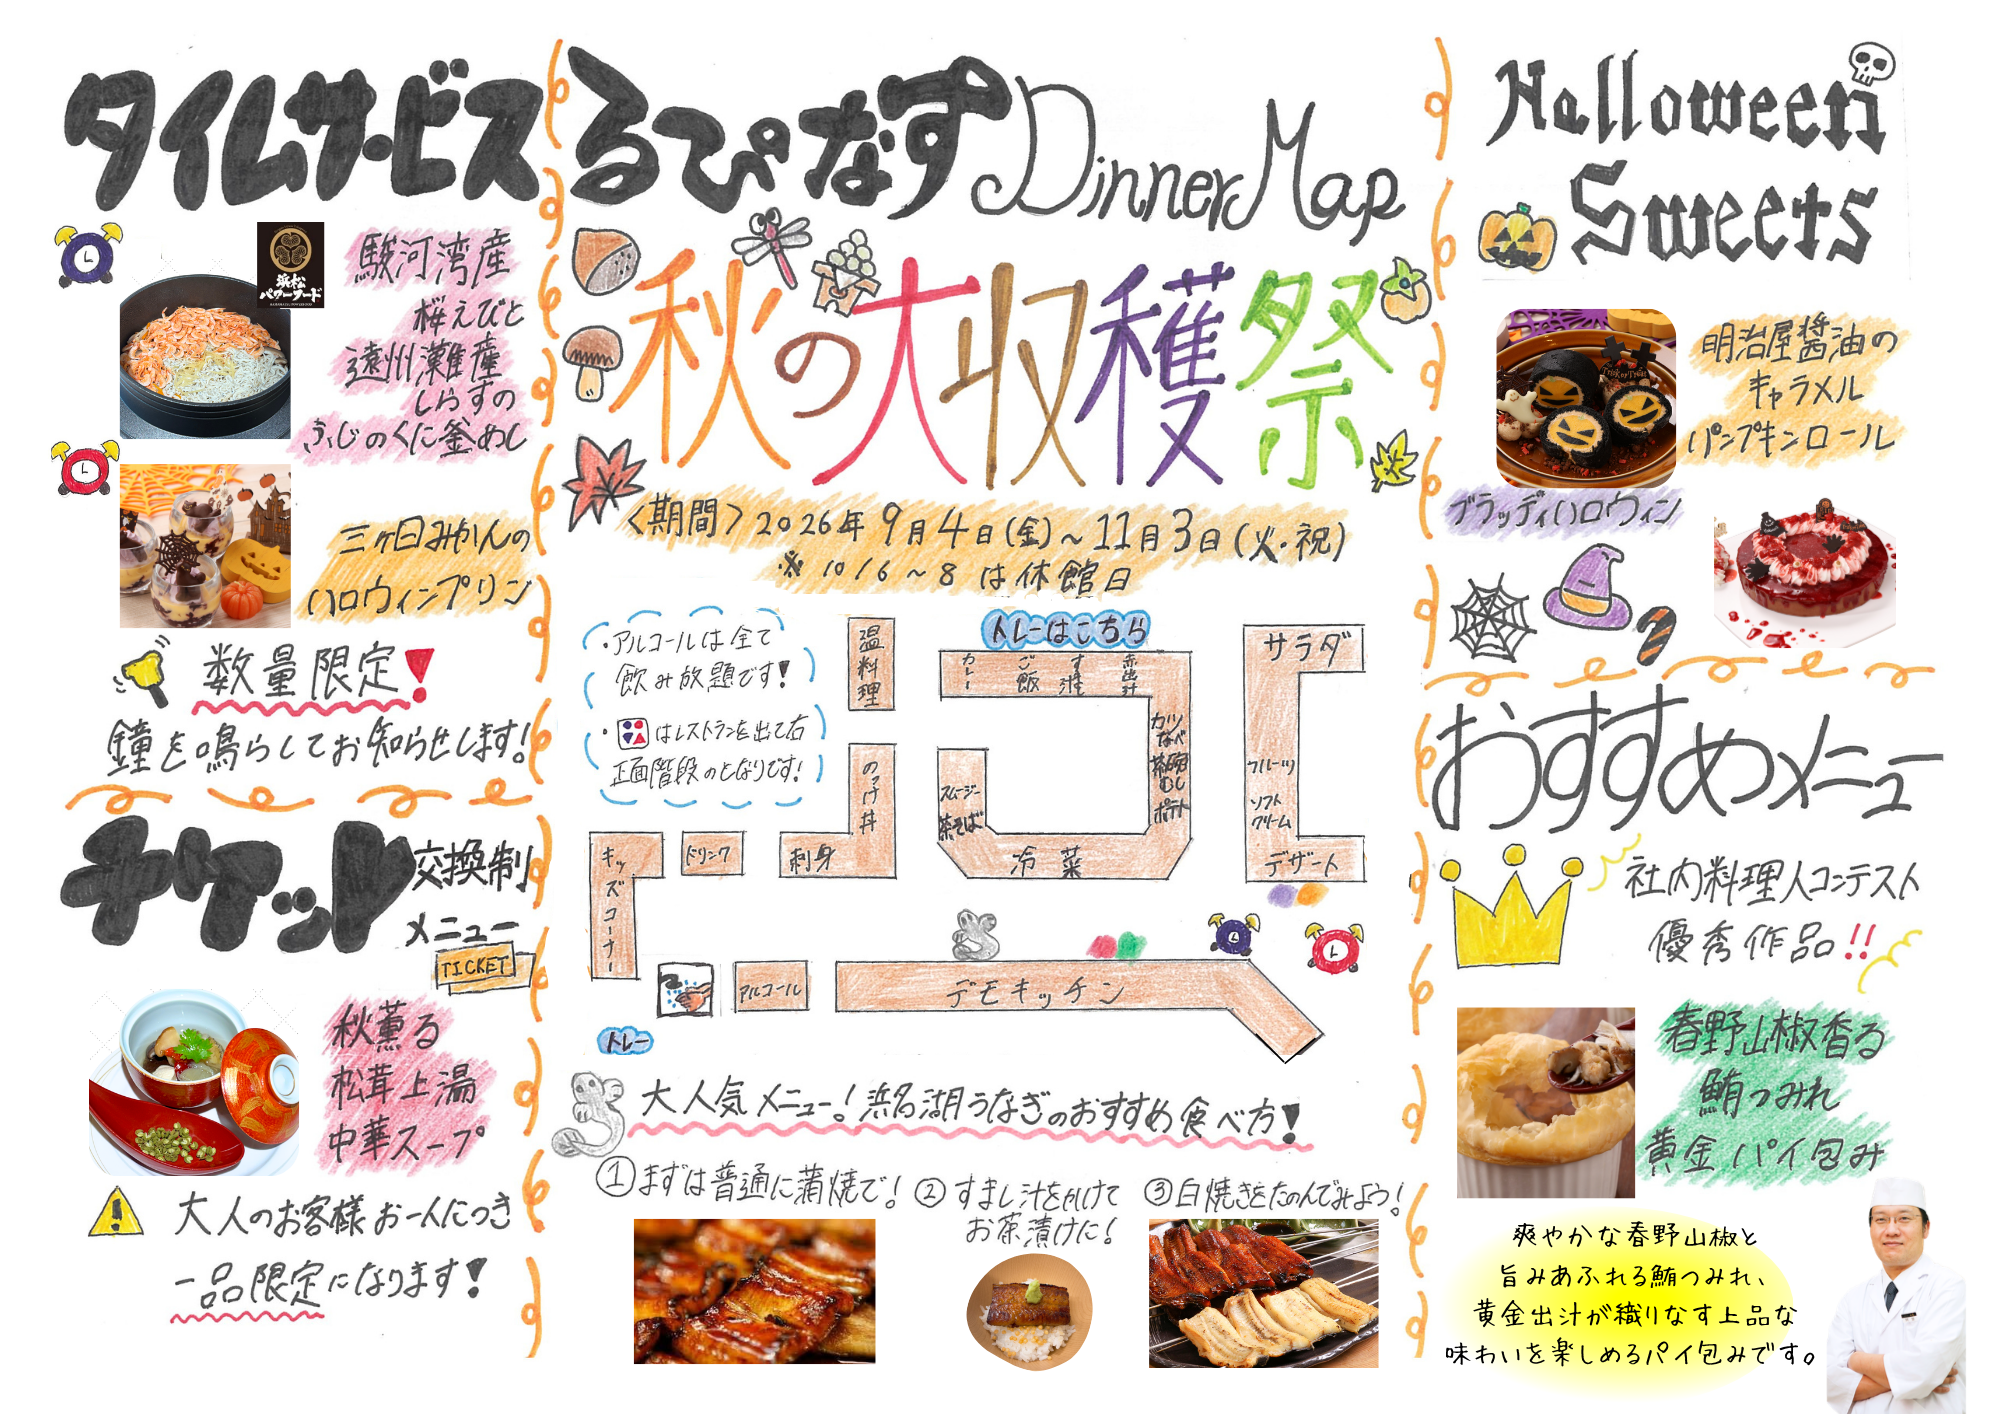 タイムサービス
浜松
パワーフード
駿河湾産
桜えびと
遠州灘産
しらすの
ふじのくに釜めし
三ヶ日みかんの
ハロウィンプリン
数量限定!
鐘を鳴らしてお知らせします!
チケット交換制
メニュー
TICKET
秋薫る
松茸上湯
中華スープ
大人のお客様お一人につき
一品限定になります!
るぴなすDinner Map
秋の大収穫祭
〈期間〉2026年9月4日(金)~11月3日(火・祝)
※10/6~8は休館日
・アルコールは全て
飲み放題です!
・はレストランを出て右
正面階段のとなりです!
温料理
トレーはこちら
カレー
ご飯
すまし汁
赤出汁
カツなべ
茶碗むし
ポテト
スムージー
茶そば
冷菜
サラダ
フルーツ
ソフトクリーム
デザート
のっけ丼
刺身
ドリンク
キッズコーナー
アルコール
デモキッチン
トレー
大人気メニュー!浜名湖うなぎのおすすめ食べ方!
①まずは普通に蒲焼で!
②すまし汁をかけて
お茶漬けに!
③白焼きをたのんでみよう!
Halloween
Sweets
明治屋醤油の
キャラメル
パンプキンロール
Trick or Treat
ブラッディハロウィン
おすすめメニュー
社内料理人コンテスト
優秀作品!!
春野山椒香る
鮪つみれ
黄金パイ包み
爽やかな春野山椒と
旨みあふれる鮪つみれ、
黄金出汁が織りなす上品な
味わいを楽しめるパイ包みです。